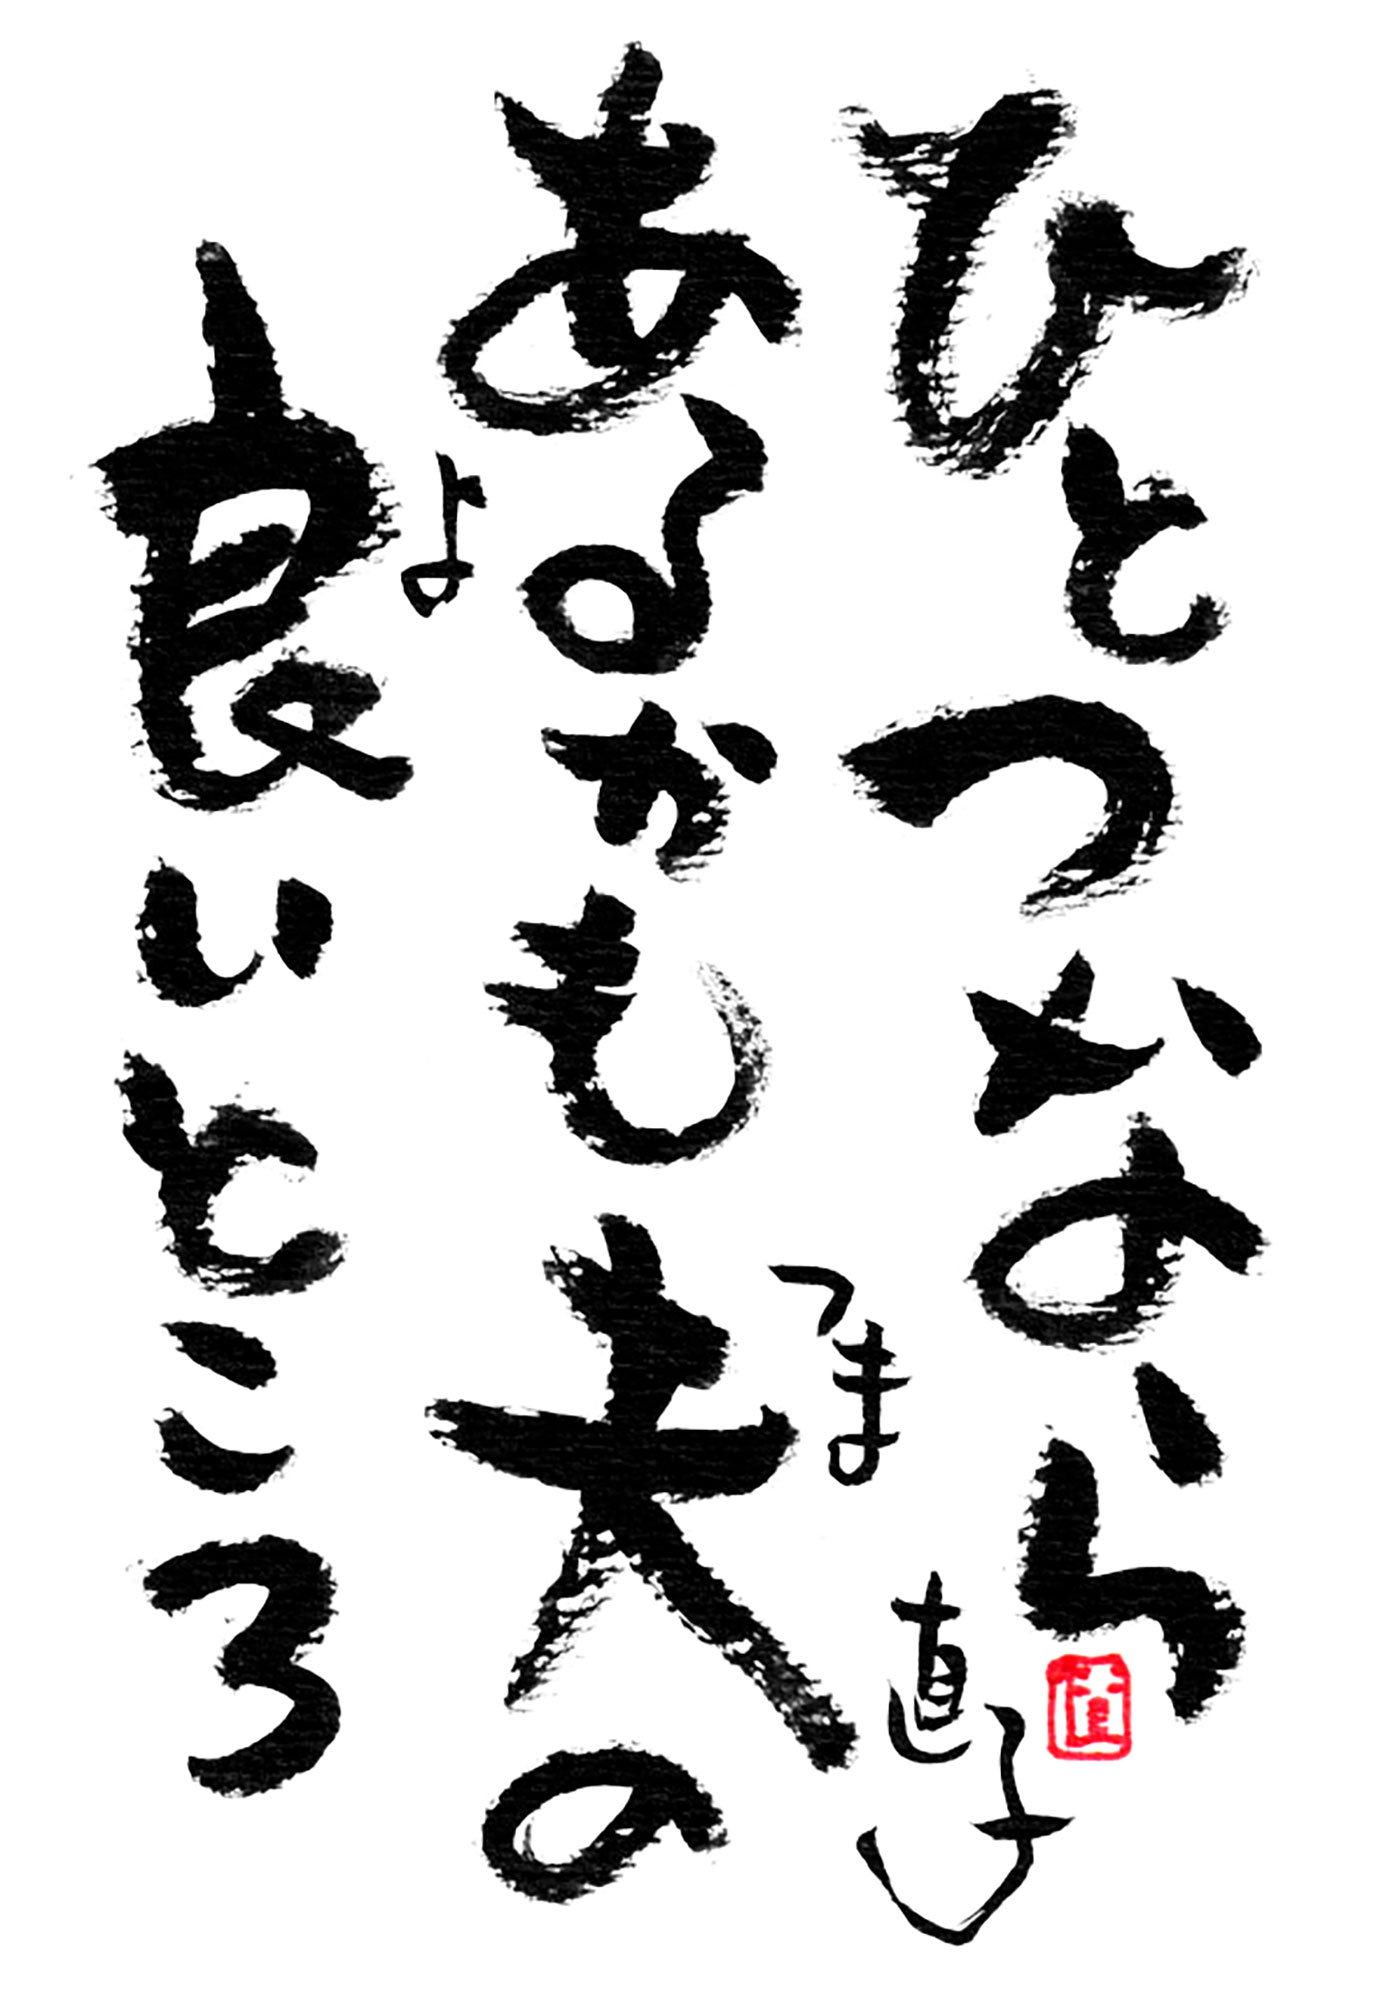 ひとつなら
あるかも夫の
つま
良いところ
よ
直子
直